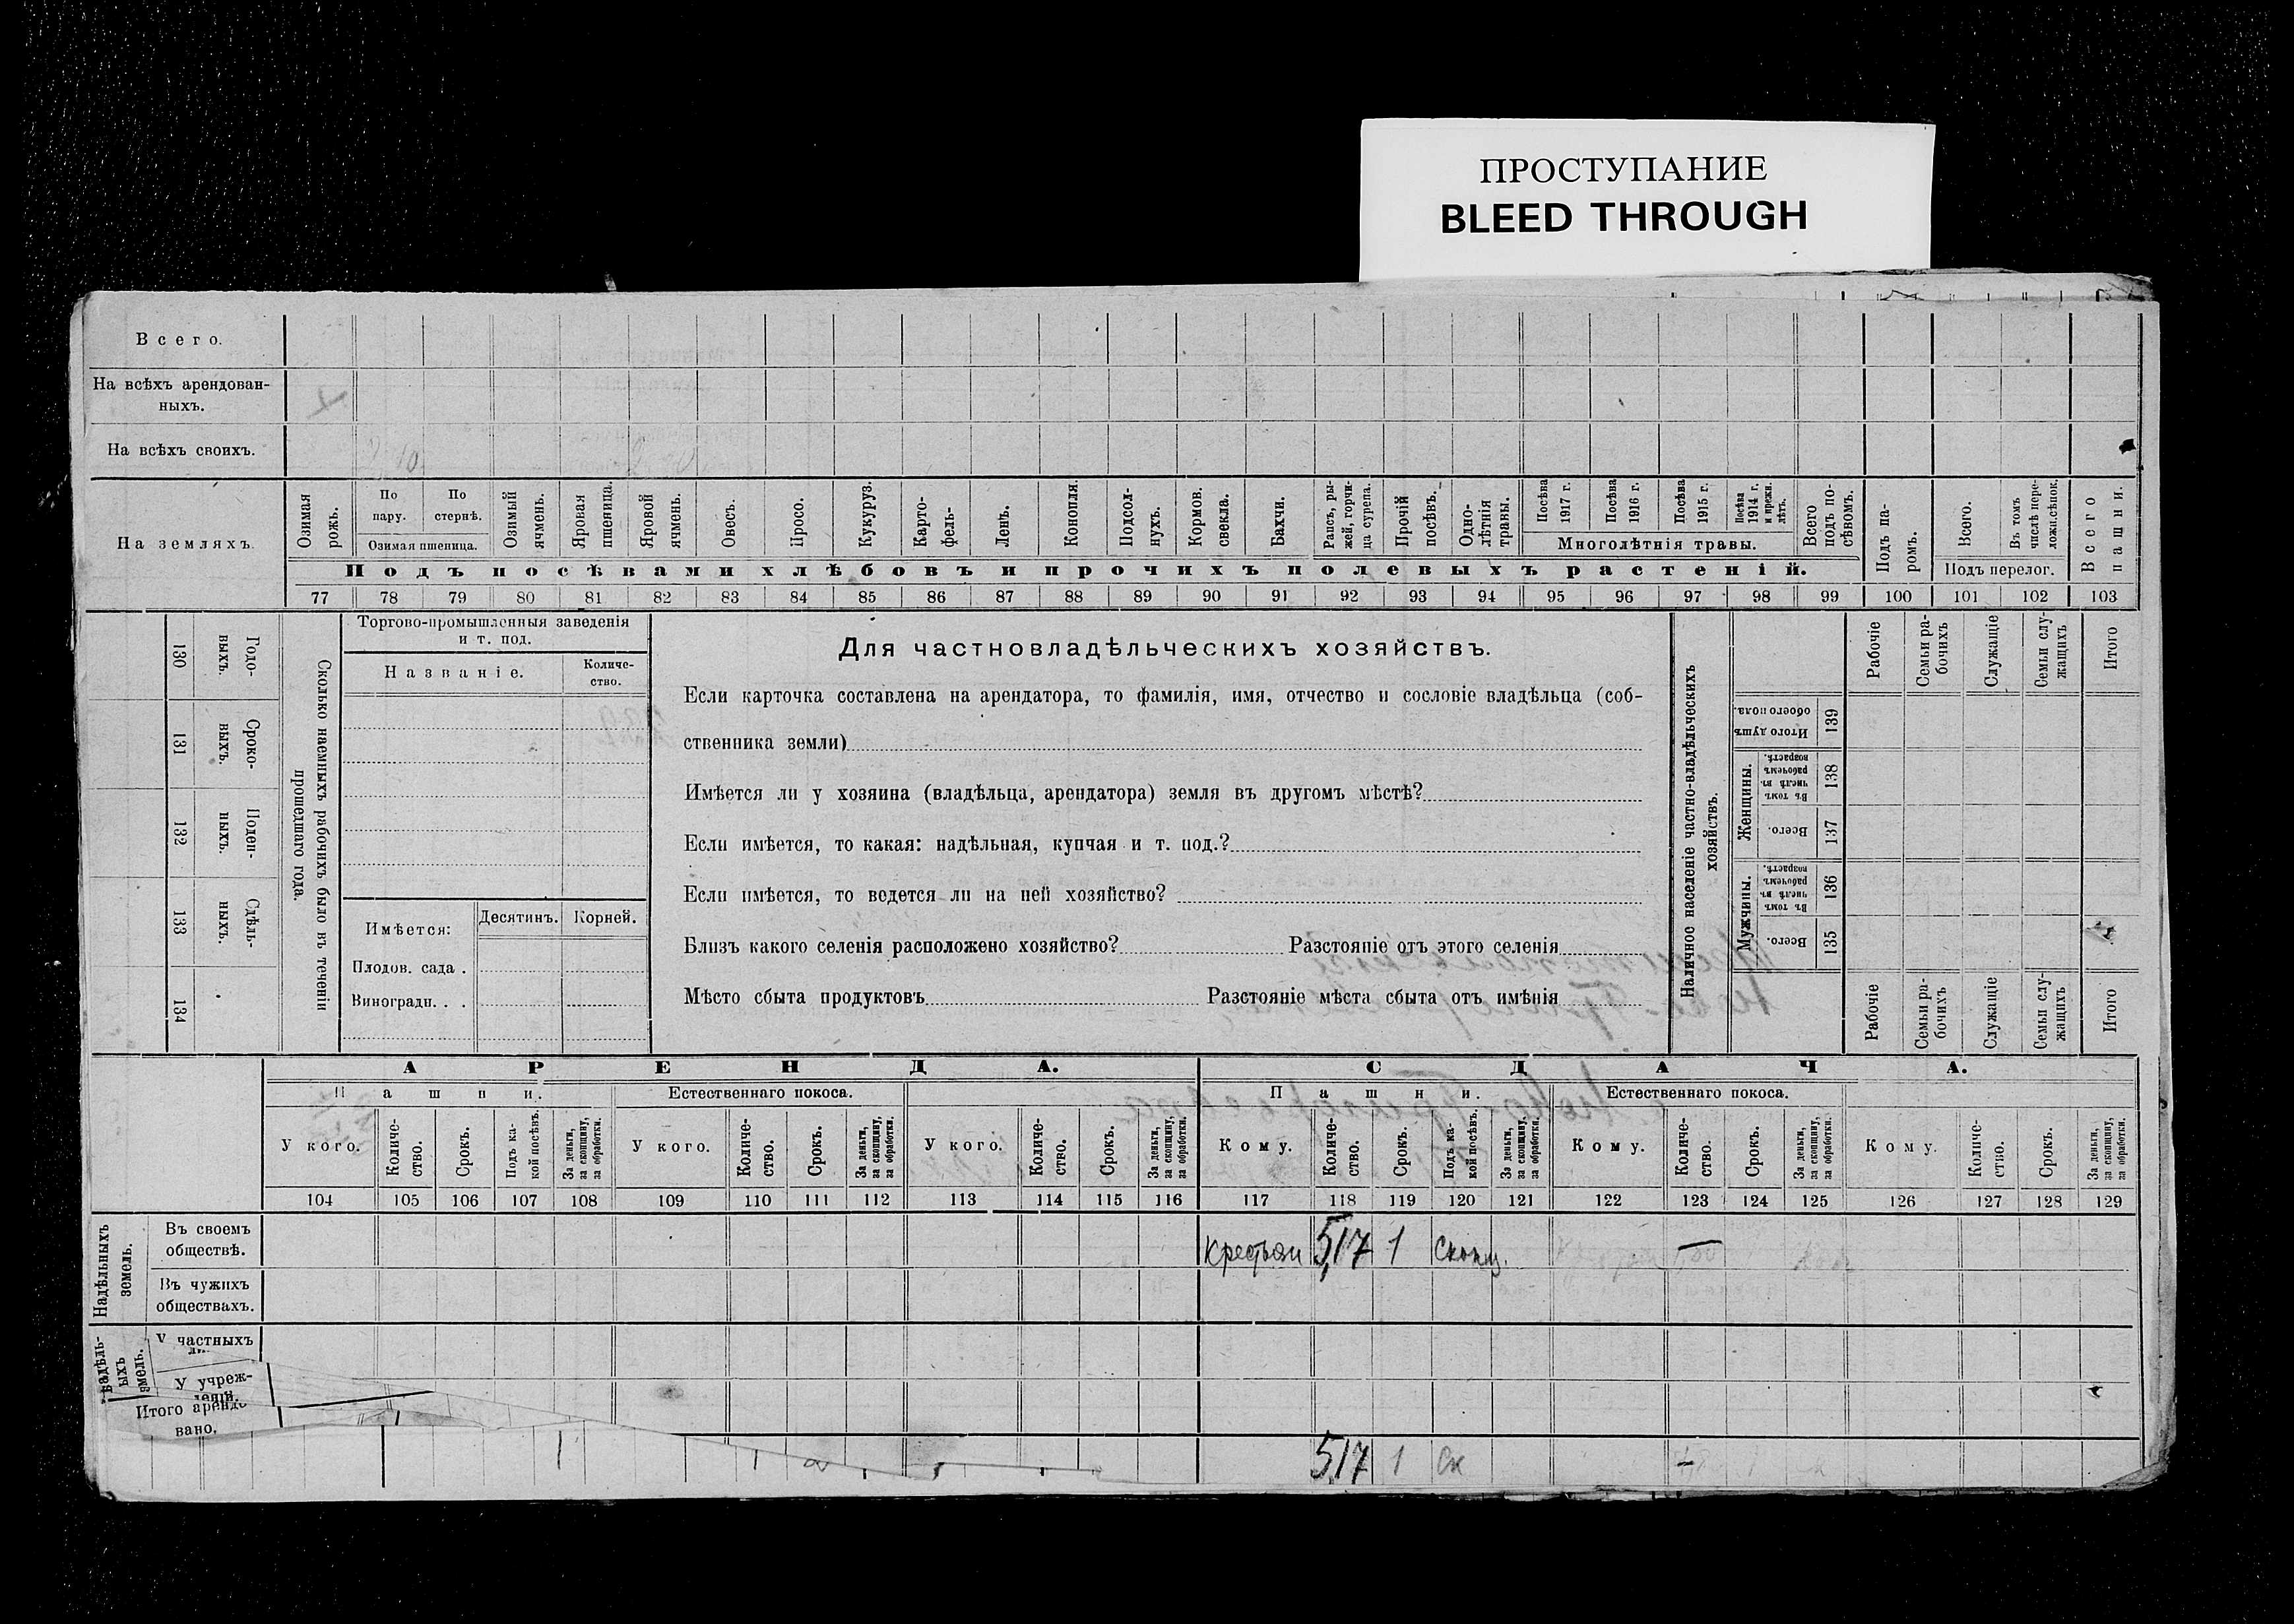 ПРОСТУПАНИЕ
BLEED THROUGH
Всего.
На всѣхъ арендован-
ныхъ.
На всѣхъ своихъ.
На земляхъ.
Озимая рожь.
По пару.
По стернѣ.
Озимая пшеница.
Озимый ячмень.
Яровая пшеница.
Яровой ячмень.
Овесъ.
Просо.
Кукуруз.
Карто-
фель-
Ленъ.
Конопля.
Подсол-
нухъ.
Кормов. свекла.
Бахчи.
Рапсъ, ры-
жей, горчи-
ца сурепа.
Прочій посѣвъ.
Одно-
лѣтнія травы.
Посѣва 1917 г.
Посѣва 1916 г.
Посѣва 1915 г.
Посѣва 1914 г. и прежн. лѣтъ.
Многолѣтнія травы.
Всего подъ по-
сѣвомъ.
Подъ па-
ромъ.
Всего.
Въ томъ числѣ пере-
ложн.сѣнок.
Подъ перелог.
Всего пашни.
Подъ посѣвами хлѣбовъ и прочихъ полевыхъ растеній.
77 78 79 80 81 82 83 84 85 86 87 88 89 90 91 92 93 94 95 96 97 98 99 100 101 102 103
130
Годо-
выхъ.
131
Сроко-
ныхъ.
132
Поден-
ныхъ.
133
Сдѣль-
ныхъ.
134
Сколько наемныхъ рабочихъ было въ теченіи
прошедшаго года.
Торгово-промышленныя заведенія
и т. под.
Названіе.
Количе-
ство.
Имѣется:
Десятинъ.
Корней.
Плодов. сада .
Виноградн. . .
Для частновладѣльческихъ хозяйствъ.
Если карточка составлена на арендатора, то фамилія, имя, отчество и сословіе владѣльца (соб-
ственника земли)
Имѣется ли у хозяина (владѣльца, арендатора) земля въ другомъ мѣстѣ?
Если имѣется, то какая: надѣльная, купчая и т. под.?
Если имѣется, то ведется ли на ней хозяйство?
Близъ какого селенія расположено хозяйство? Разстояніе отъ этого селенія
Мѣсто сбыта продуктовъ Разстояніе мѣста сбыта отъ имѣнія
Наличное населеніе частно-владѣльческихъ
хозяйствъ.
Рабочіе
Семьи ра-
бочихъ
Служащіе
Семьи слу-
жащихъ
Итого
Итого душъ обоего пола.
139
Женщины.
Въ томъ числѣ въ рабочемъ возрастѣ.
138
Всего.
137
Мужчины.
Въ томъ числѣ въ рабочемъ возрастѣ.
136
Всего.
135
Рабочіе
Семьи ра-
бочихъ
Служащіе
Семьи слу-
жащихъ
Итого
АРЕНДА. СДАЧА.
Пашни. Естественнаго покоса. Пашни. Естественнаго покоса.
У кого.
Количе-
ство.
Срокъ.
Подъ ка-
кой посѣвъ.
За деньги, за скопщину, за обработки.
У кого.
Количе-
ство.
Срокъ.
За деньги, за скопщину, за обработки.
У кого.
Количе-
ство.
Срокъ.
За деньги, за скопщину, за обработки.
Кому.
Количе-
ство.
Срокъ.
Подъ ка-
кой посѣвъ.
За деньги, за скопщину, за обработки.
Кому.
Количе-
ство.
Срокъ.
За деньги, за скопщину, за обработки.
Кому.
Количе-
ство.
Срокъ.
За деньги, за скопщину, за обработки.
104 105 106 107 108 109 110 111 112 113 114 115 116 117 118 119 120 121 122 123 124 125 126 127 128 129
Надѣльныхъ
земель.
Въ своемъ
обществѣ.
Крестьян 5,17 1 Скопщ. —
Въ чужихъ
обществахъ.
У частныхъ
У учреж-
Итого арендо
вано.
5,17 1 Ск —